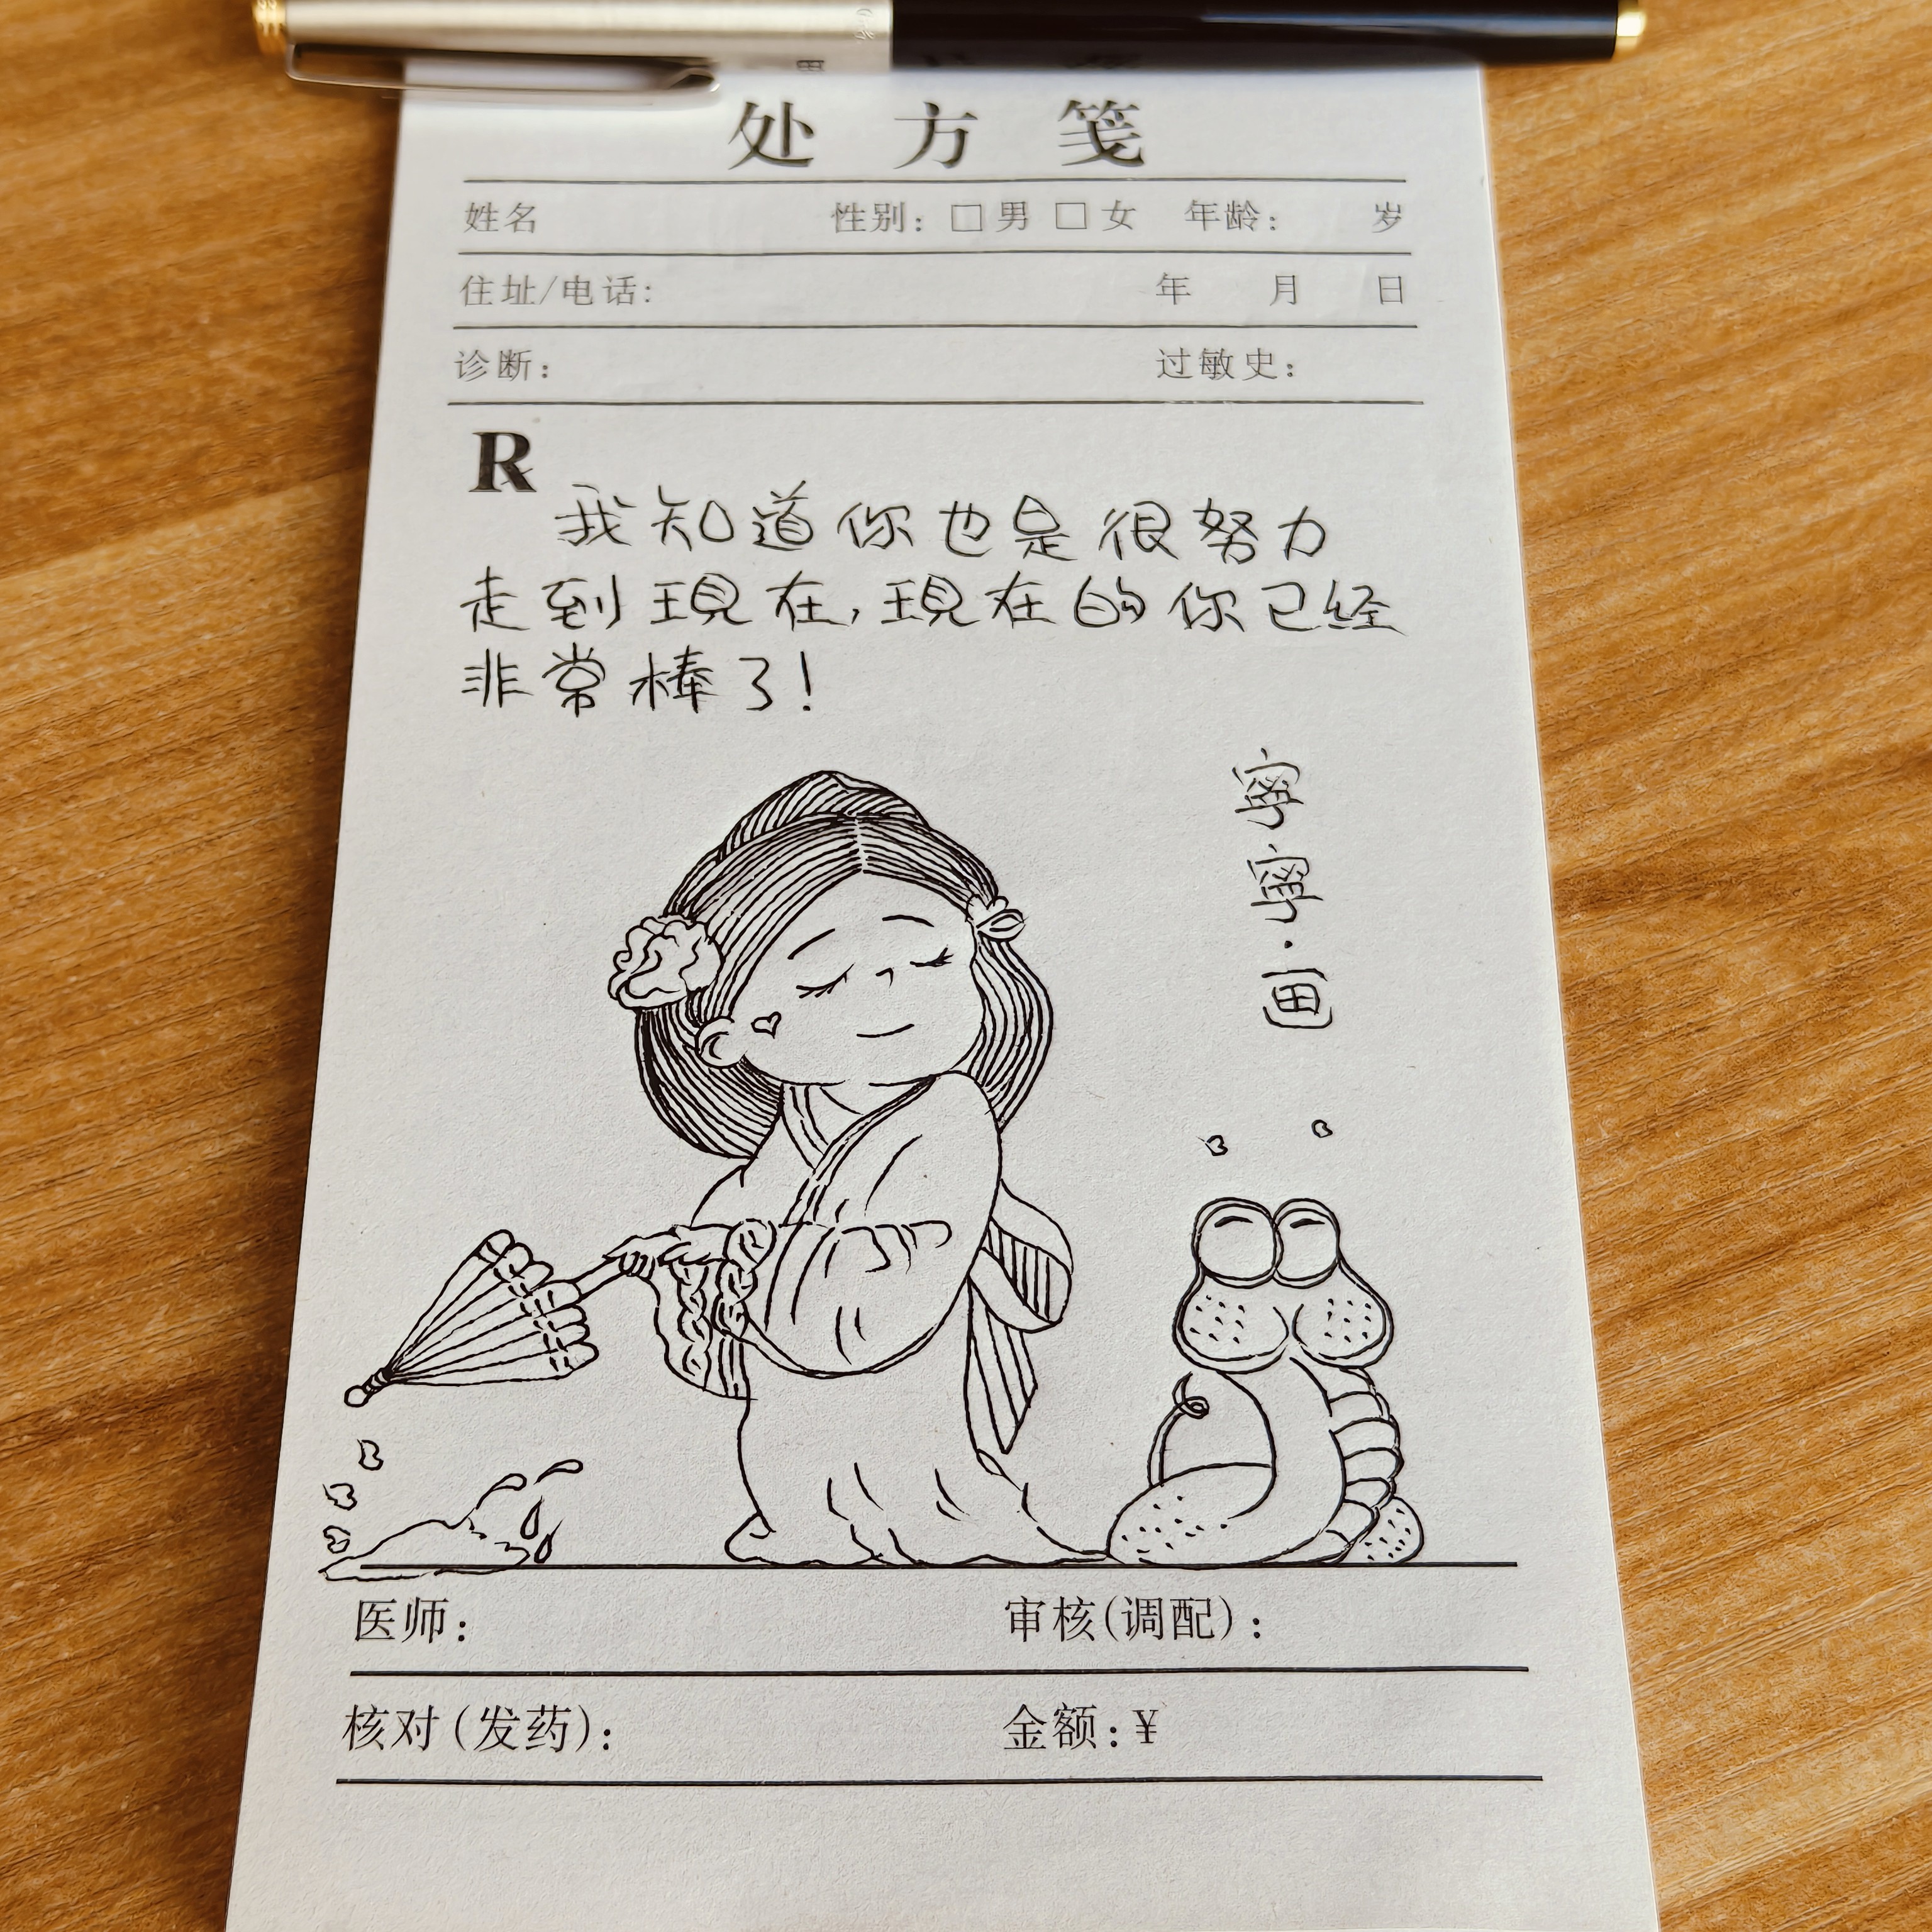 处方笺
姓名 性别：□男 □女 年龄： 岁
住址/电话： 年 月 日
诊断： 过敏史：
R
我知道你也是很努力
走到現在，現在的你已经
非常棒了！
寧寧·画
医师： 审核(调配)：
核对(发药)： 金额：¥